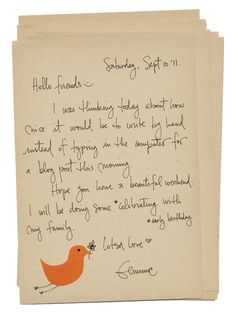 Saturday, Sept 10 '11.
Hello friends :)
I was thinking today about how
nice it would be to write by hand
instead of typing in the computer for
a blog post this morning.
Hope you have a beautiful weekend.
I will be doing some *celebrating with
my family.
*early birthday
Lotsa Love ♡